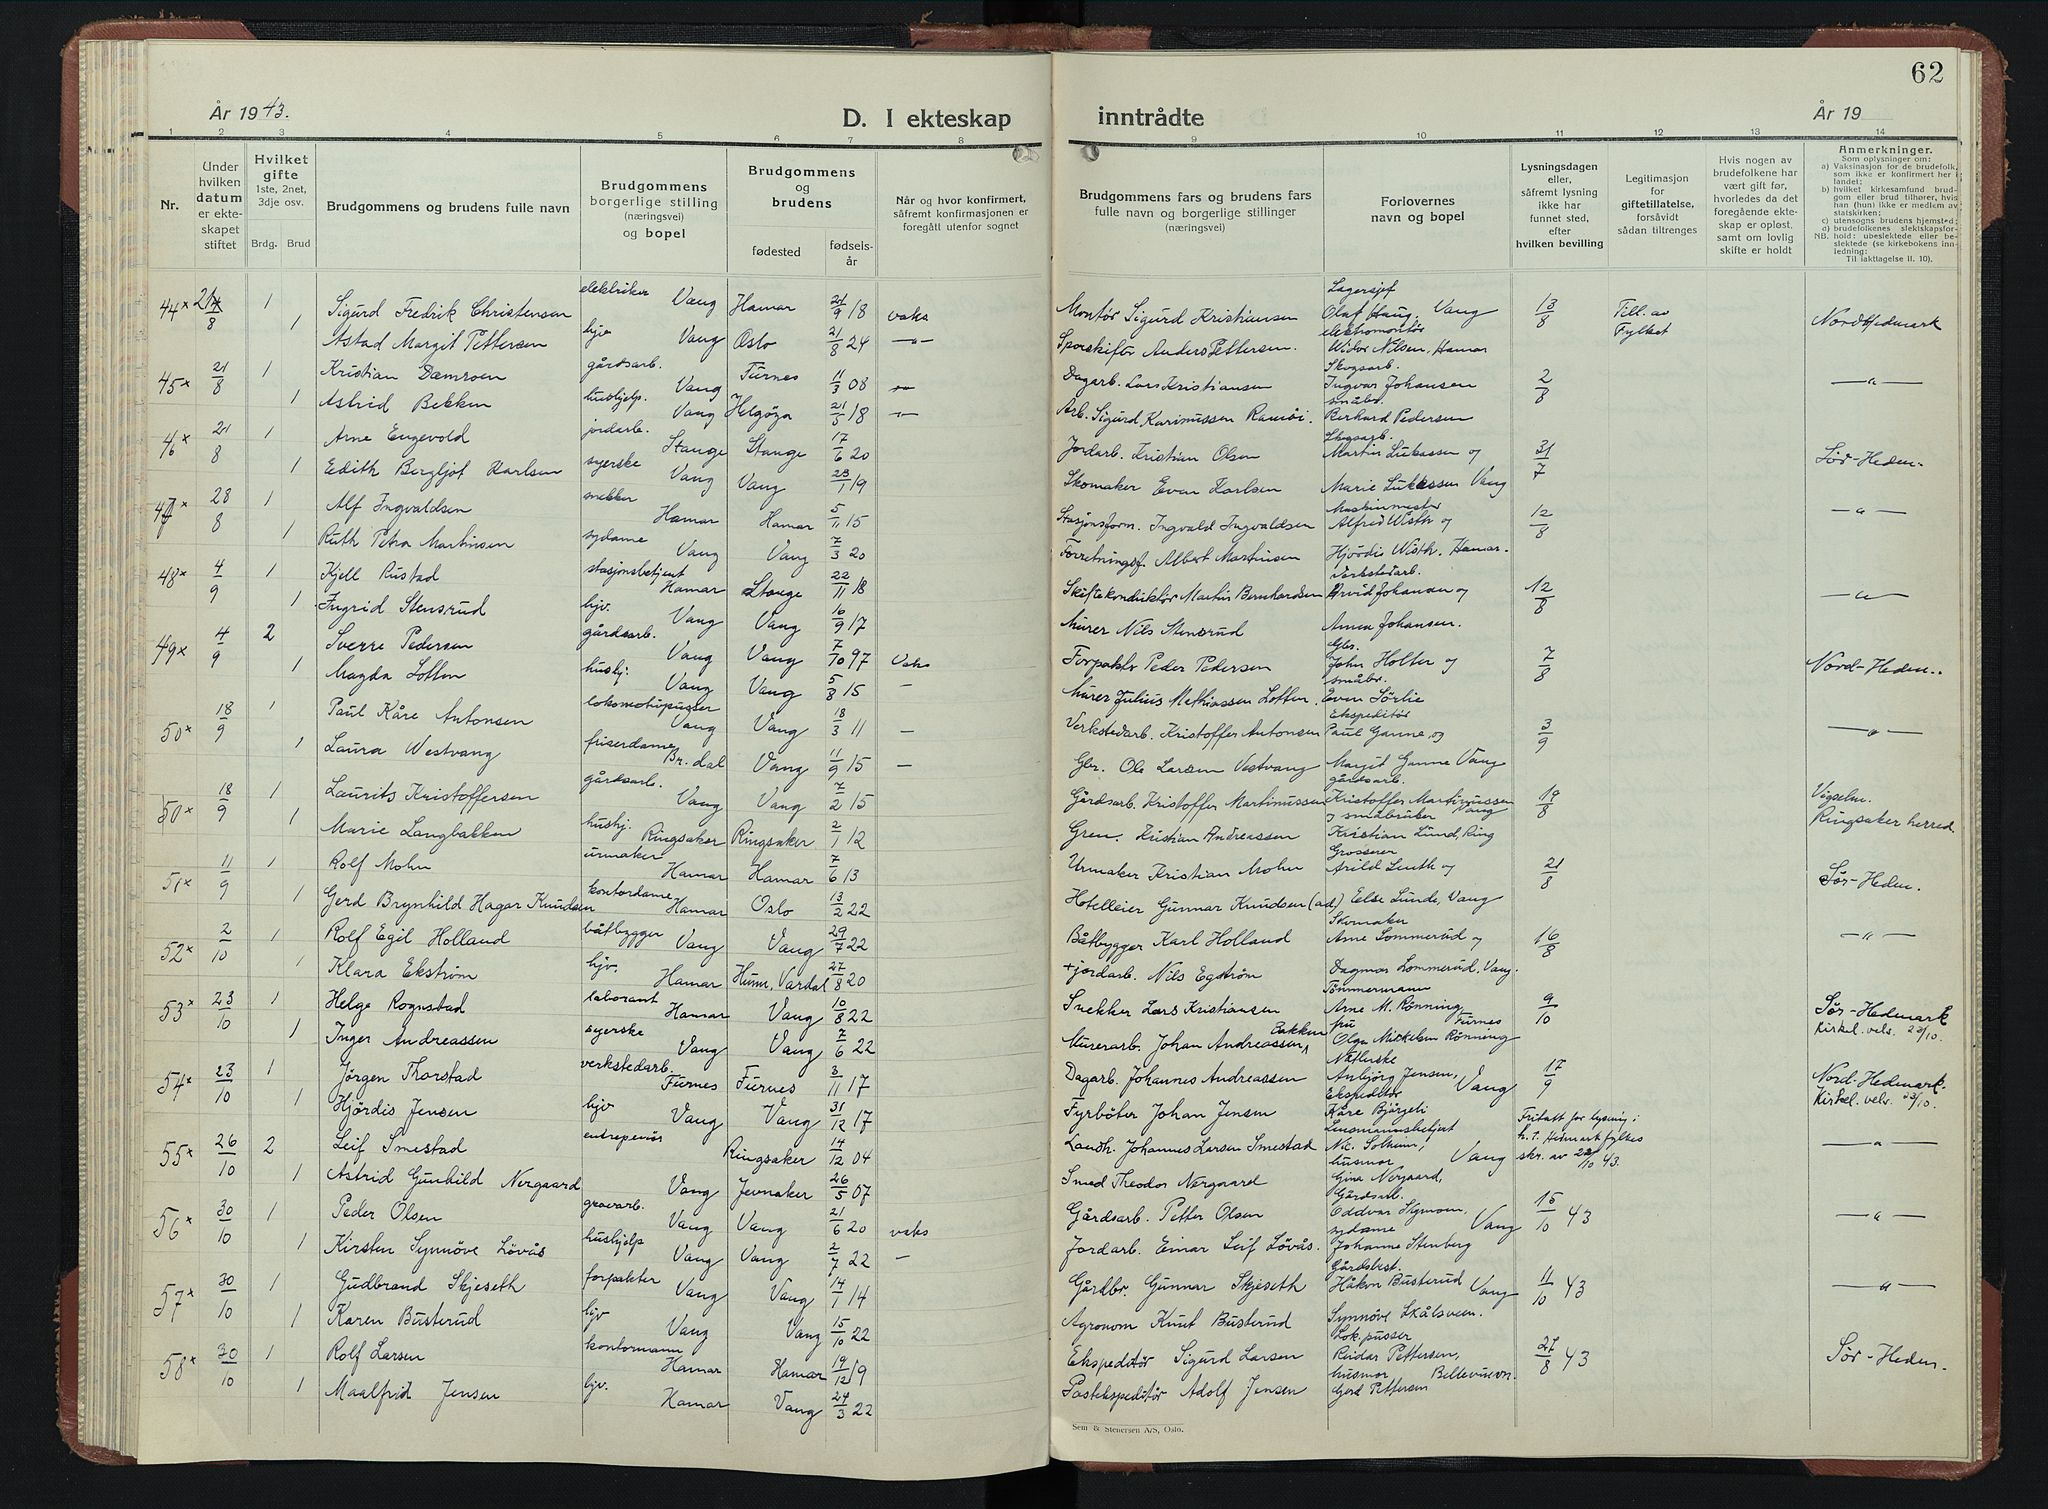 62
År 1943.
D. I ekteskap
inntrådte
År 19
1 2 3 4 5 6 7 8 9 10 11 12 13 14
Nr.
Under hvilken datum er ekteskapet stiftet
Hvilket gifte
1ste, 2net, 3dje osv.
Brdg. Brud
Brudgommens og brudens fulle navn
Brudgommens borgerlige stilling (næringsvei) og bopel
Brudgommens og brudens
fødested
fødselsår
Når og hvor konfirmert, såfremt konfirmasjonen er foregått utenfor sognet
Brudgommens fars og brudens fars fulle navn og borgerlige stillinger (næringsvei)
Forlovernes navn og bopel
Lysningsdagen eller, såfremt lysning ikke har funnet sted, efter hvilken bevilling
Legitimasjon for giftetillatelse, forsåvidt sådan tiltrenges
Hvis nogen av brudefolkene har vært gift før, hvorledes da det foregående ekteskap er opløst, samt om lovlig skifte er holdt
Anmerkninger.
Som oplysninger om:
a) Vaksinasjon for de brudefolk, som ikke er konfirmert her i landet;
b) hvilket kirkesamfund brudgom eller brud tilhører, hvis han (hun) ikke er medlem av statskirken;
c) utensogns brudens hjemsted;
d) brudefolkenes slektskapsforhold: ubeslektede eller beslektede (se kirkebokens innledning;
NB. Til iakttagelse II. 10).
44x 21/8 1 Sigurd Fredrik Christensen elektriker Vang Hamar 21/9 18 vaks Montør Sigurd Kristiansen Lagersjef Olaf Haug, Vang 13/8 Till. av Fylket Nordhedmark
1 Astad Margit Pettersen hjv Vang Oslo 21/8 24 —"— Sporskifter Anders Pettersen. elektromontør Widar Nilsen, Hamar
45x 21/8 1 Kristian Dæmroen gårdsarb. Vang Furnes 11/3 08 Dagarb. Lars Kristiansen Skogsarb. Ingvar Johansen 2/8 —"—
1 Astrid Bekken hushjelp. Vang Helgøya 21/5 18 —"— Arb. Sigurd Karinussen småbr. Berhard Pedersen
46x 21/8 1 Arne Engevold jordarb. Stange Stange 17/6 20 Jordarb. Kristian Olsen Skogsarb. Martin Lukassen og 31/7 Sør-Heden.
1 Edith Bergljot Karlsen syerske Vang Vang 28/1 19 Skomaker Even Karlsen Marie Lukassen Vang
47x 28/8 1 Alf Ingvaldsen snekker Hamar Hamar 5/11 15 Stasjonsform. Ingvald Ingvaldsen Maskinmester Alfred Wisth og 12/8 —"—
1 Ruth Petra Martinsen sydame Vang Vang 7/3 20 Forretningsf. Albert Martinsen Hjördis Wisth. Hamar.
48x 4/9 1 Kjell Rustad stasjonsbetjent Hamar Stange 22/11 18 Skiftekonduktør Martin Bernhardsen Verkstedarb. Arvid Johansen og 12/8 —"—
1 Ingrid Stensrud hjv. Vang Vang 16/9 17 Murer Nils Stensrud Anna Johansen.
49x 4/9 2 Sverre Pedersen gårdsarb. Vang Vang 7/10 97 Vaks Forpakter Peder Pedersen Gbr. John Holter og 7/8 Nord-Heden..
1 Magda Lotten hushj. Vang Vang 5/8 15 — Murer Julius Mathiassen Lotten. småbr. Even Sörlie
50x 18/9 1 Paul Kåre Antonsen lokomotivpusser Vang Vang 18/3 11 — Verkstedarb. Kristoffer Antonsen Ekspeditør Paul Ganne, og 3/9 —"—
1 Laura Westvang friserdame Br.dal Vang 11/9 15 — Gbr. Ole Larsen Vestvang Margit Ganne Vang
50x 18/9 1 Laurits Kristoffersen gårdsarb. Vang Vang 7/2 15 Gårdsarb. Kristoffer Martinussen gårdsarb. Kristoffer Martinussen Vang 19/8 Vigselm. Ringsaker herred.
1 Marie Langbakken hushj. Ringsaker Ringsaker 2/1 12 Gren. Kristian Andreassen og småbruker Kristian Lund, Ring
51x 11/9 1 Rolf Mohn urmaker Hamar Hamar 7/6 13 Urmaker Kristian Mohn Grosserer Arild Lunth og 21/8 Sør-Heden.
1 Gerd Brynhild Hagar Knudsen kontordame Hamar Oslo 13/2 22 Hotelleier Gunnar Knudsen (ad.) Else Lunde, Vang
52x 2/10 1 Rolf Egil Holland båtbygger Vang Vang 29/7 22 Båtbygger Karl Holland Skomaker Arne Sommerud og 16/8 —"—
1 Klara Ekström hjv. Hamar Hunn, Vardal 27/8 20 + jordarb. Nils Egström Dagmar Sommerud, Vang.
53x 23/10 1 Helge Rognstad laborant Hamar Vang 10/8 22 Snekker Lars Kristiansen Tömmermann Arne M. Rønning 9/10 Sør-Hedmark
1 Inger Andreassen syerske Vang Vang 7/6 22 Murerarb. Johan Andreassen Bakken fru Furnes Olga Mickelsen Rønning Kirkel. velv. 23/10.
54x 23/10 1 Jörgen Thorstad verkstedarb. Furnes Furnes 3/11 17 Dagarb. Johannes Andreassen Anbjörg Jensen, Vang 17/9 Nord-Hedmark.
1 Hjördis Jensen hjv Vang Vang 31/12 17 Fyrböter Johan Jensen Ekspeditør Kåre Bjørgeli Kirkel. velv. 23/10.
55x 26/10 2 Leif Smestad entreprenör Ringsaker 14/12 04 Landh. Johannes Larsen Smestad Lensmannsbetjent Nic. Solheim, Vang Fritatt for lysning i h.t. Hedmark fylkes skr. av 22/10 43. —"—
1 Astrid Gunhild Nergaard Vang Jevnaker 26/5 07 Smed Theodor Nergaard husmor Gina Nergaard,
56x 30/10 1 Peder Olsen gravarb. Vang Vang 21/6 20 vaks Gårdsarb. Petter Olsen Gårdsarb. Oddvar Vang 15/10 43 —"—
1 Kirsten Synnöve Lövås hushjelp Vang Vang 2/7 22 — Jordarb. Einar Leif Lövås. sydame Johanne Stenberg
57x 30/10 1 Gudbrand Skjeseth forpakter Vang Vang 14/1 14 Gårdbr. Gunnar Skjeseth Gårdbest. Håkon Busterud Vang 11/10 43 —"—
1 Karen Busterud hjv Vang Vang 15/10 22 Agronom Knut Busterud Synnöve Skålsveen.
58x 30/10 1 Rolf Larsen kontormann Hamar Hamar 19/12 19 Ekspeditör Sigurd Larsen Lok.pusser Reidar Pettersen, 27/8 43 Sør-Heden.
1 Maalfrid Jensen hjv. Hamar Vang 24/3 22 Postekspeditör Adolf Jensen husmor Gjerd Pettersen
Sem & Stenersen A/S, Oslo.